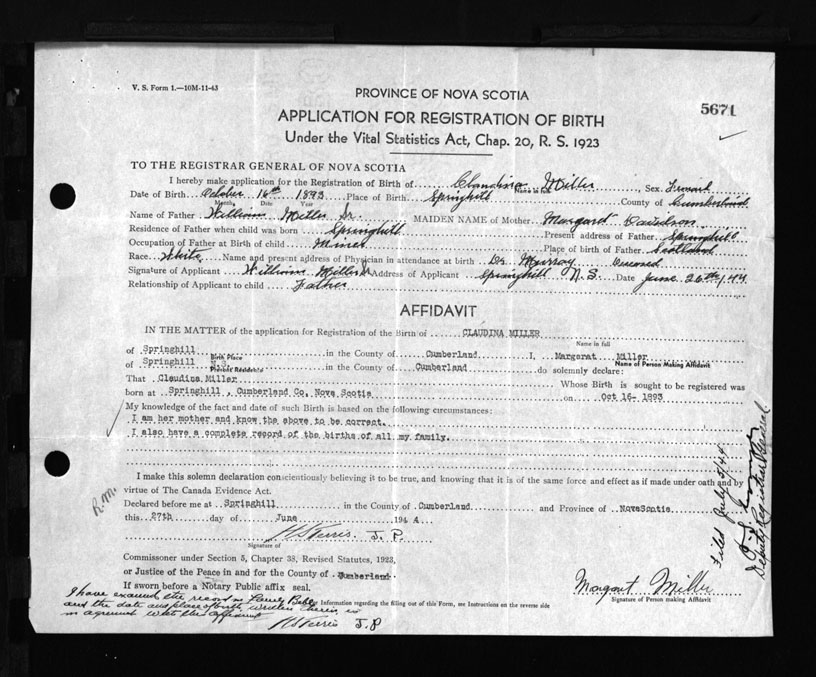 V. S. Form 1.—10M-11-43
PROVINCE OF NOVA SCOTIA
5671
APPLICATION FOR REGISTRATION OF BIRTH
Under the Vital Statistics Act, Chap. 20, R. S. 1923
TO THE REGISTRAR GENERAL OF NOVA SCOTIA
I hereby make application for the Registration of Birth of Claudina Miller, Sex
Name in full
Date of Birth October 16th 1893 Place of Birth Springhill County of Cumberland
Month Date Year
Name of Father William Miller Sr. MAIDEN NAME of Mother Margaret Davidson
Residence of Father when child was born Springhill Present address of Father Springhill
Occupation of Father at Birth of child Miner Place of birth of Father Scotland
Race White Name and present address of Physician in attendance at birth Dr Murray Deceased
Signature of Applicant William Miller Sr Address of Applicant Springhill N.S. Date June 26th/44
Relationship of Applicant to child Father
AFFIDAVIT
IN THE MATTER of the application for Registration of the Birth of CLAUDINA MILLER
Name in full
of Springhill in the County of Cumberland I, Margerat Miller
Birth Place Name of Person Making Affidavit
of Springhill N.S. in the County of Cumberland do solemnly declare:
Present Residence
That Claudina Miller Whose Birth is sought to be registered was
born at Springhill , Cumberland Co, Nova Scotia on Oct 16- 1893
My knowledge of the fact and date of such Birth is based on the following circumstances:
I am her mother and know the above to be correct.
I also have a complete record of the births of all my family.
I make this solemn declaration conscientiously believing it to be true, and knowing that it is of the same force and effect as if made under oath and by
virtue of The Canada Evidence Act.
R.M.
Declared before me at Springhill in the County of Cumberland and Province of NovaScotia
this 27th day of June 1944
J. P.
Signature of
Commissioner under Section 5, Chapter 38, Revised Statutes, 1923,
or Justice of the Peace in and for the County of Cumberland.
If sworn before a Notary Public affix seal.
Margaret Miller
Signature of Person making Affidavit
Information regarding the filling out of this Form, see Instructions on the reverse side
I have examined the record in Family Bible
and the date and place of birth written therein is
in agreement with the affidavit
J.P
Filed July 5/44
Deputy Registrar General